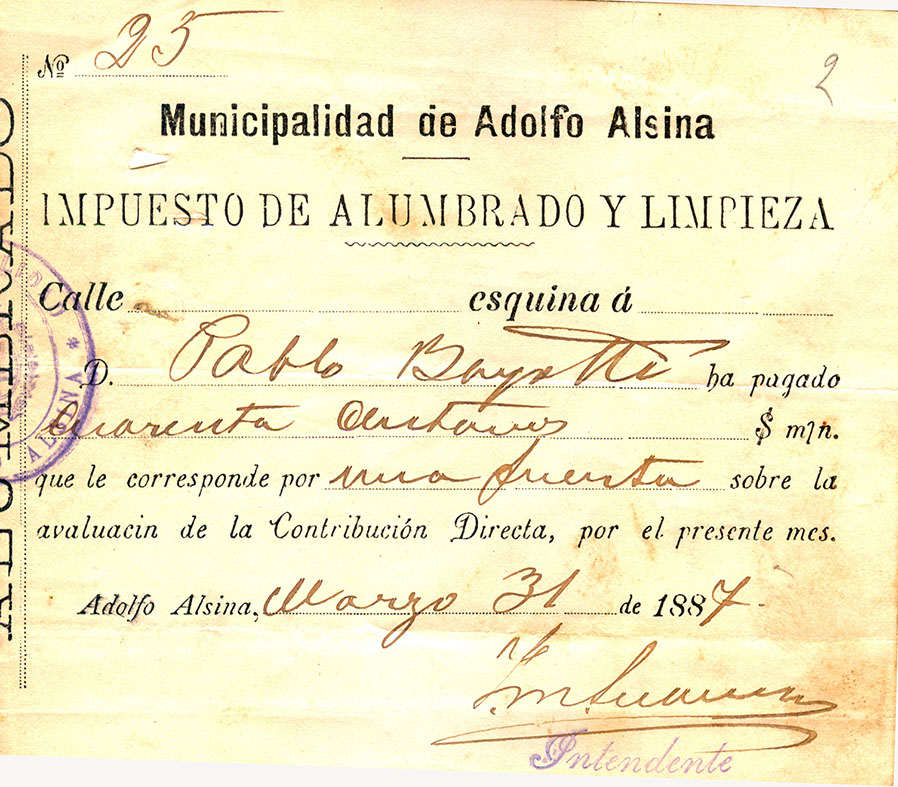 Nº 25
2
Municipalidad de Adolfo Alsina
IMPUESTO DE ALUMBRADO Y LIMPIEZA
Calle esquina á
D. Pablo ha pagado
Cuarenta Centavos $ m/n.
que le corresponde por una puerta sobre la
avaluacin de la Contribución Directa, por el presente mes.
Adolfo Alsina, Marzo 31 de 1887.
Intendente
ALSINA *